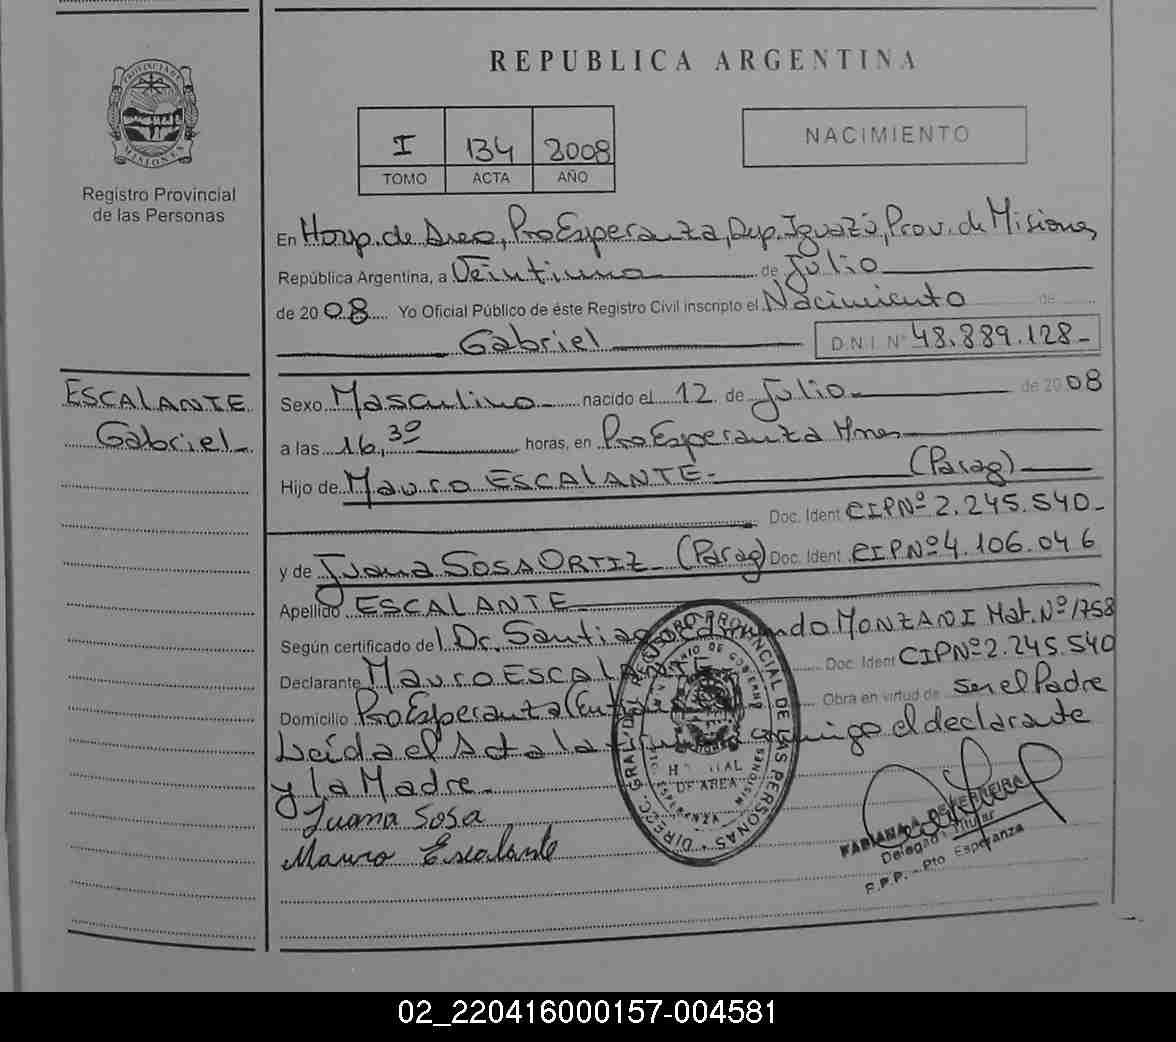 REPUBLICA ARGENTINA
PROVINCIA DE MISIONES
Registro Provincial
de las Personas
I 134 2008
TOMO ACTA AÑO
NACIMIENTO
En Hosp. de Area, Pto Esperanza, Dep. Iguazú, Prov. de Misiones
República Argentina, a Veintiuno de Julio
de 2008 Yo Oficial Público de éste Registro Civil inscripto el Nacimiento de
Gabriel D.N.I. Nº 48.889.128-
ESCALANTE
Gabriel-
Sexo Masculino- nacido el 12 de Julio- de 2008
a las 16,30 horas, en Pto Esperanza Mnes
Hijo de Mauro ESCALANTE- (Parag)
Doc. Ident CIPNº 2.245.540-
y de Juana SOSA ORTIZ- (Parag) Doc. Ident CIPNº 4.106.046
Apellido ESCALANTE
Según certificado del Dr. Santiago MONZANI Mat. Nº 1758
Declarante Mauro ESCALANTE Doc. Ident CIPNº 2.245.540
Domicilio Pto Esperanza Obra en virtud de ser el Padre
Leída el Acta la conmigo el declarante
y la Madre.
Juana Sosa
Mauro Escalante
DIREC. GRAL. DEL REGISTRO PROVINCIAL DE LAS PERSONAS
MINISTERIO DE GOBIERNO
HOSPITAL
DE AREA
PTO ESPERANZA MISIONES
FABIANA A. DE FERREIRA
Delegado Titular
R.P.P. - Pto Esperanza
02_220416000157-004581